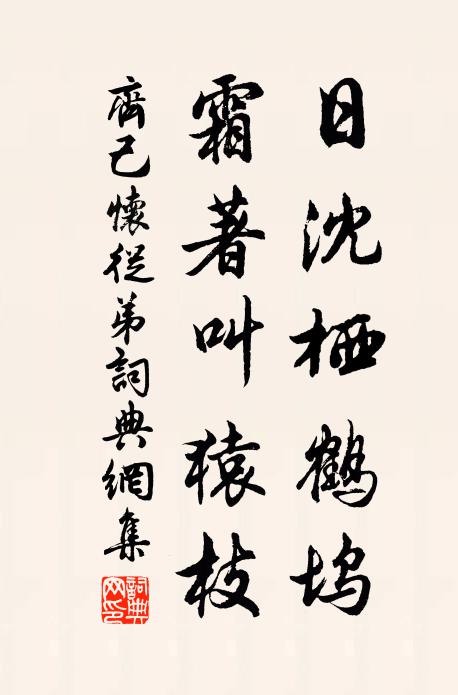 日沈栖鹤坞
霜著叫猿枝
齊己懷從弟詞典網集
詞典
网印